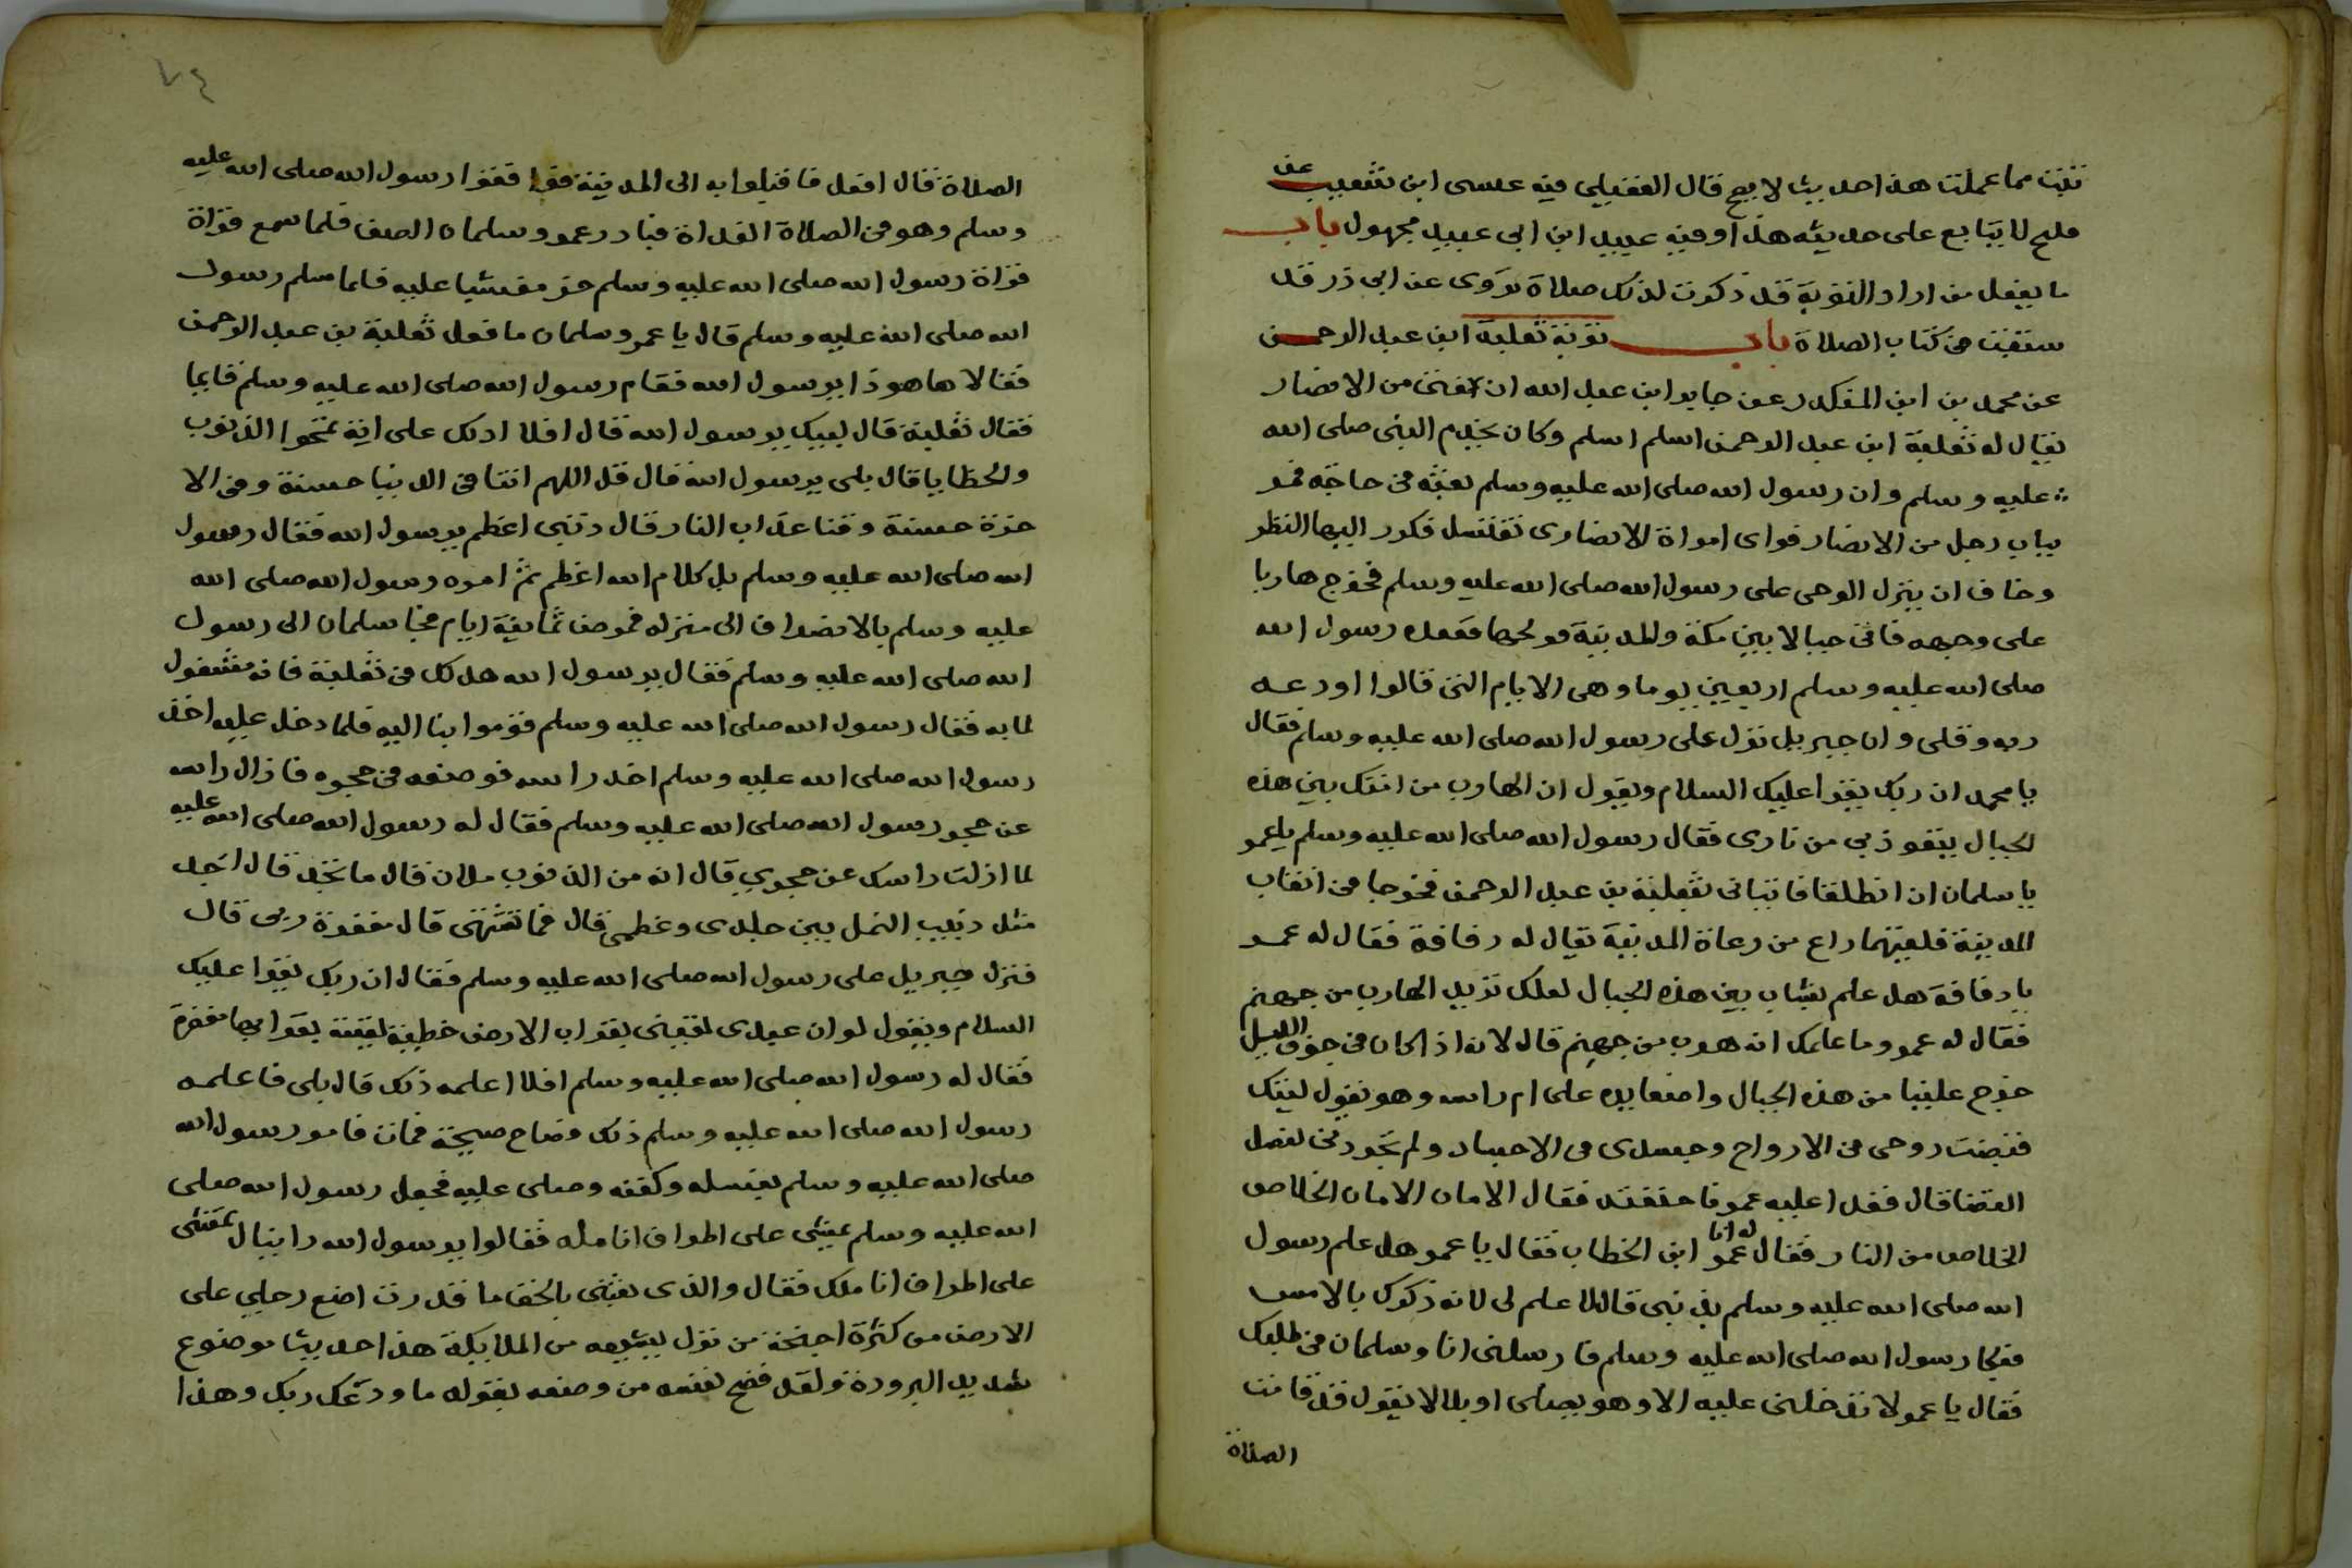 تثبت مما عملت هذا حديث لا يصح قال العقيلي فيه عيسى ابن شعيب عن
فليح لا يتابع على حديثه هذا وفيه عبيد ابن ابي عبيد مجهول باب
ما يفعل من اراد التوبة قد ذكرت لذلك صلاة تروى عن ابي ذر قد
سبقت في كتاب الصلاة باب توبة ثعلبة ابن عبد الرحمن
عن محمد بن ابن المنكدر عن جابر ابن عبد الله ان فتى من الانصار
يقال له ثعلبة ابن عبد الرحمن اسلم اسلم وكان يخدم النبي صلى الله
عليه وسلم وان رسول الله صلى الله عليه وسلم بعثه في حاجة فمر
بباب رجل من الانصار فراى امراة الانصارى تغتسل فكرر اليها النظر
وخاف ان ينزل الوحى على رسول الله صلى الله عليه وسلم فخرج هاربا
على وجهه فاتى جبالا بين مكة والمدينة فولجها ففقده رسول الله
صلى الله عليه وسلم اربعين يوما وهى الايام التى قالوا اودعه
ربه وقلى وان جبريل نزل على رسول الله صلى الله عليه وسلم فقال
يا محمد ان ربك يقرا عليك السلام ويقول ان الهارب من امتك بين هذه
الجبال يتعوذ بى من نارى فقال رسول الله صلى الله عليه وسلم يا عمر
يا سلمان ان انطلقا فاتيانى بثعلبة بن عبد الرحمن فخرجا من انقاب
المدينة فلقيتهما راع من رعاة المدينة يقال له رفافة فقال له عمر
يا رفافة هل علم بشاب بين هذه الجبال لعلك تريد الهارب من جهنم
فقال له عمر وما علمك انه هرب من جهنم قال لانه اذا كان فى جوف الليل
خرج علينا من هذه الجبال واضعا يده على ام راسه وهو يقول ليتك
قبضت روحى فى الارواح وجسدى فى الاجساد ولم تجردنى لفصل
القضا قال فغدا عليه عمر فاحتضنه فقال الامان الامان الخلاص
الخلاص من النار فقال له انا عمر ابن الخطاب فقال يا عمر هل علم رسول
الله صلى الله عليه وسلم بذنبى قال لا علم لى لانه ذكرك بالامس
فبكا رسول الله صلى الله عليه وسلم فارسلنى انا وسلمان فى طلبك
فقال يا عمر لا تدخلنى عليه الا وهو يصلى او بلالا يقول قد قامت
الصلاة
٧٤
الصلاة قال افعل فاقبلوا به الى المدينة فوافقوا رسول الله صلى الله عليه
وسلم وهو فى الصلاة الغداة فبادر عمر وسلمان الصف فلما سمع قراة
قراة رسول الله صلى الله عليه وسلم خر مغشيا عليه فلما سلم رسول
الله صلى الله عليه وسلم قال يا عمر وسلمان ما فعل ثعلبة بن عبد الرحمن
فقالا ها هو ذا يرسول الله فقام رسول الله صلى الله عليه وسلم قايما
فقال ثعلبة قال لبيك يرسول الله قال افلا ادلك على اية تمحوا الذنوب
والخطايا قال بلى يرسول الله قال قل اللهم اتنا فى الدنيا حسنة وفى الا
خرة حسنة وقنا عذاب النار قال ذنبى اعظم يرسول الله فقال رسول
الله صلى الله عليه وسلم بل كلام الله اعظم ثم امره رسول الله صلى الله
عليه وسلم بالانصراف الى منزله فمرض ثمانية ايام فجا سلمان الى رسول
الله صلى الله عليه وسلم فقال يرسول الله هل لك فى ثعلبة فانه مشغول
لما به فقال رسول الله صلى الله عليه وسلم قوموا بنا اليه فلما دخل عليه اخذ
رسول الله صلى الله عليه وسلم اخذ راسه فوضعه فى حجره فازال راسه
عن حجر رسول الله صلى الله عليه وسلم فقال له رسول الله صلى الله عليه
لما ازلت راسك عن حجري قال انه من الذنوب ملان قال ما تجد قال اجد
مثل دبيب النمل بين جلدى وعظمى قال فما تشتهى قال مغفرة ربى قال
فنزل جبريل على رسول الله صلى الله عليه وسلم فقال ان ربك يقرا عليك
السلام ويقول لو ان عبدى لقينى بقراب الارض خطية لقيته بقرابها مغفرة
فقال له رسول الله صلى الله عليه وسلم افلا اعلمه ذلك قال بلى فاعلمه
رسول الله صلى الله عليه وسلم ذلك وصاح صيحة فمات فامر رسول الله
صلى الله عليه وسلم بغسله وكفنه وصلى عليه فجعل رسول الله صلى
الله عليه وسلم يمشى على اطراف انامله فقالوا يرسول الله رايناك تمشى
على اطراف اناملك فقال والذى بعثنى بالحق ما قدرت اضع رجلي على
الارض من كثرة اجنحة من نزل ليشيعه من الملايكة هذا حديث موضوع
شديد البرودة ولقد فضح نفسه من وضعه بقوله ما ودعك ربك وهذا